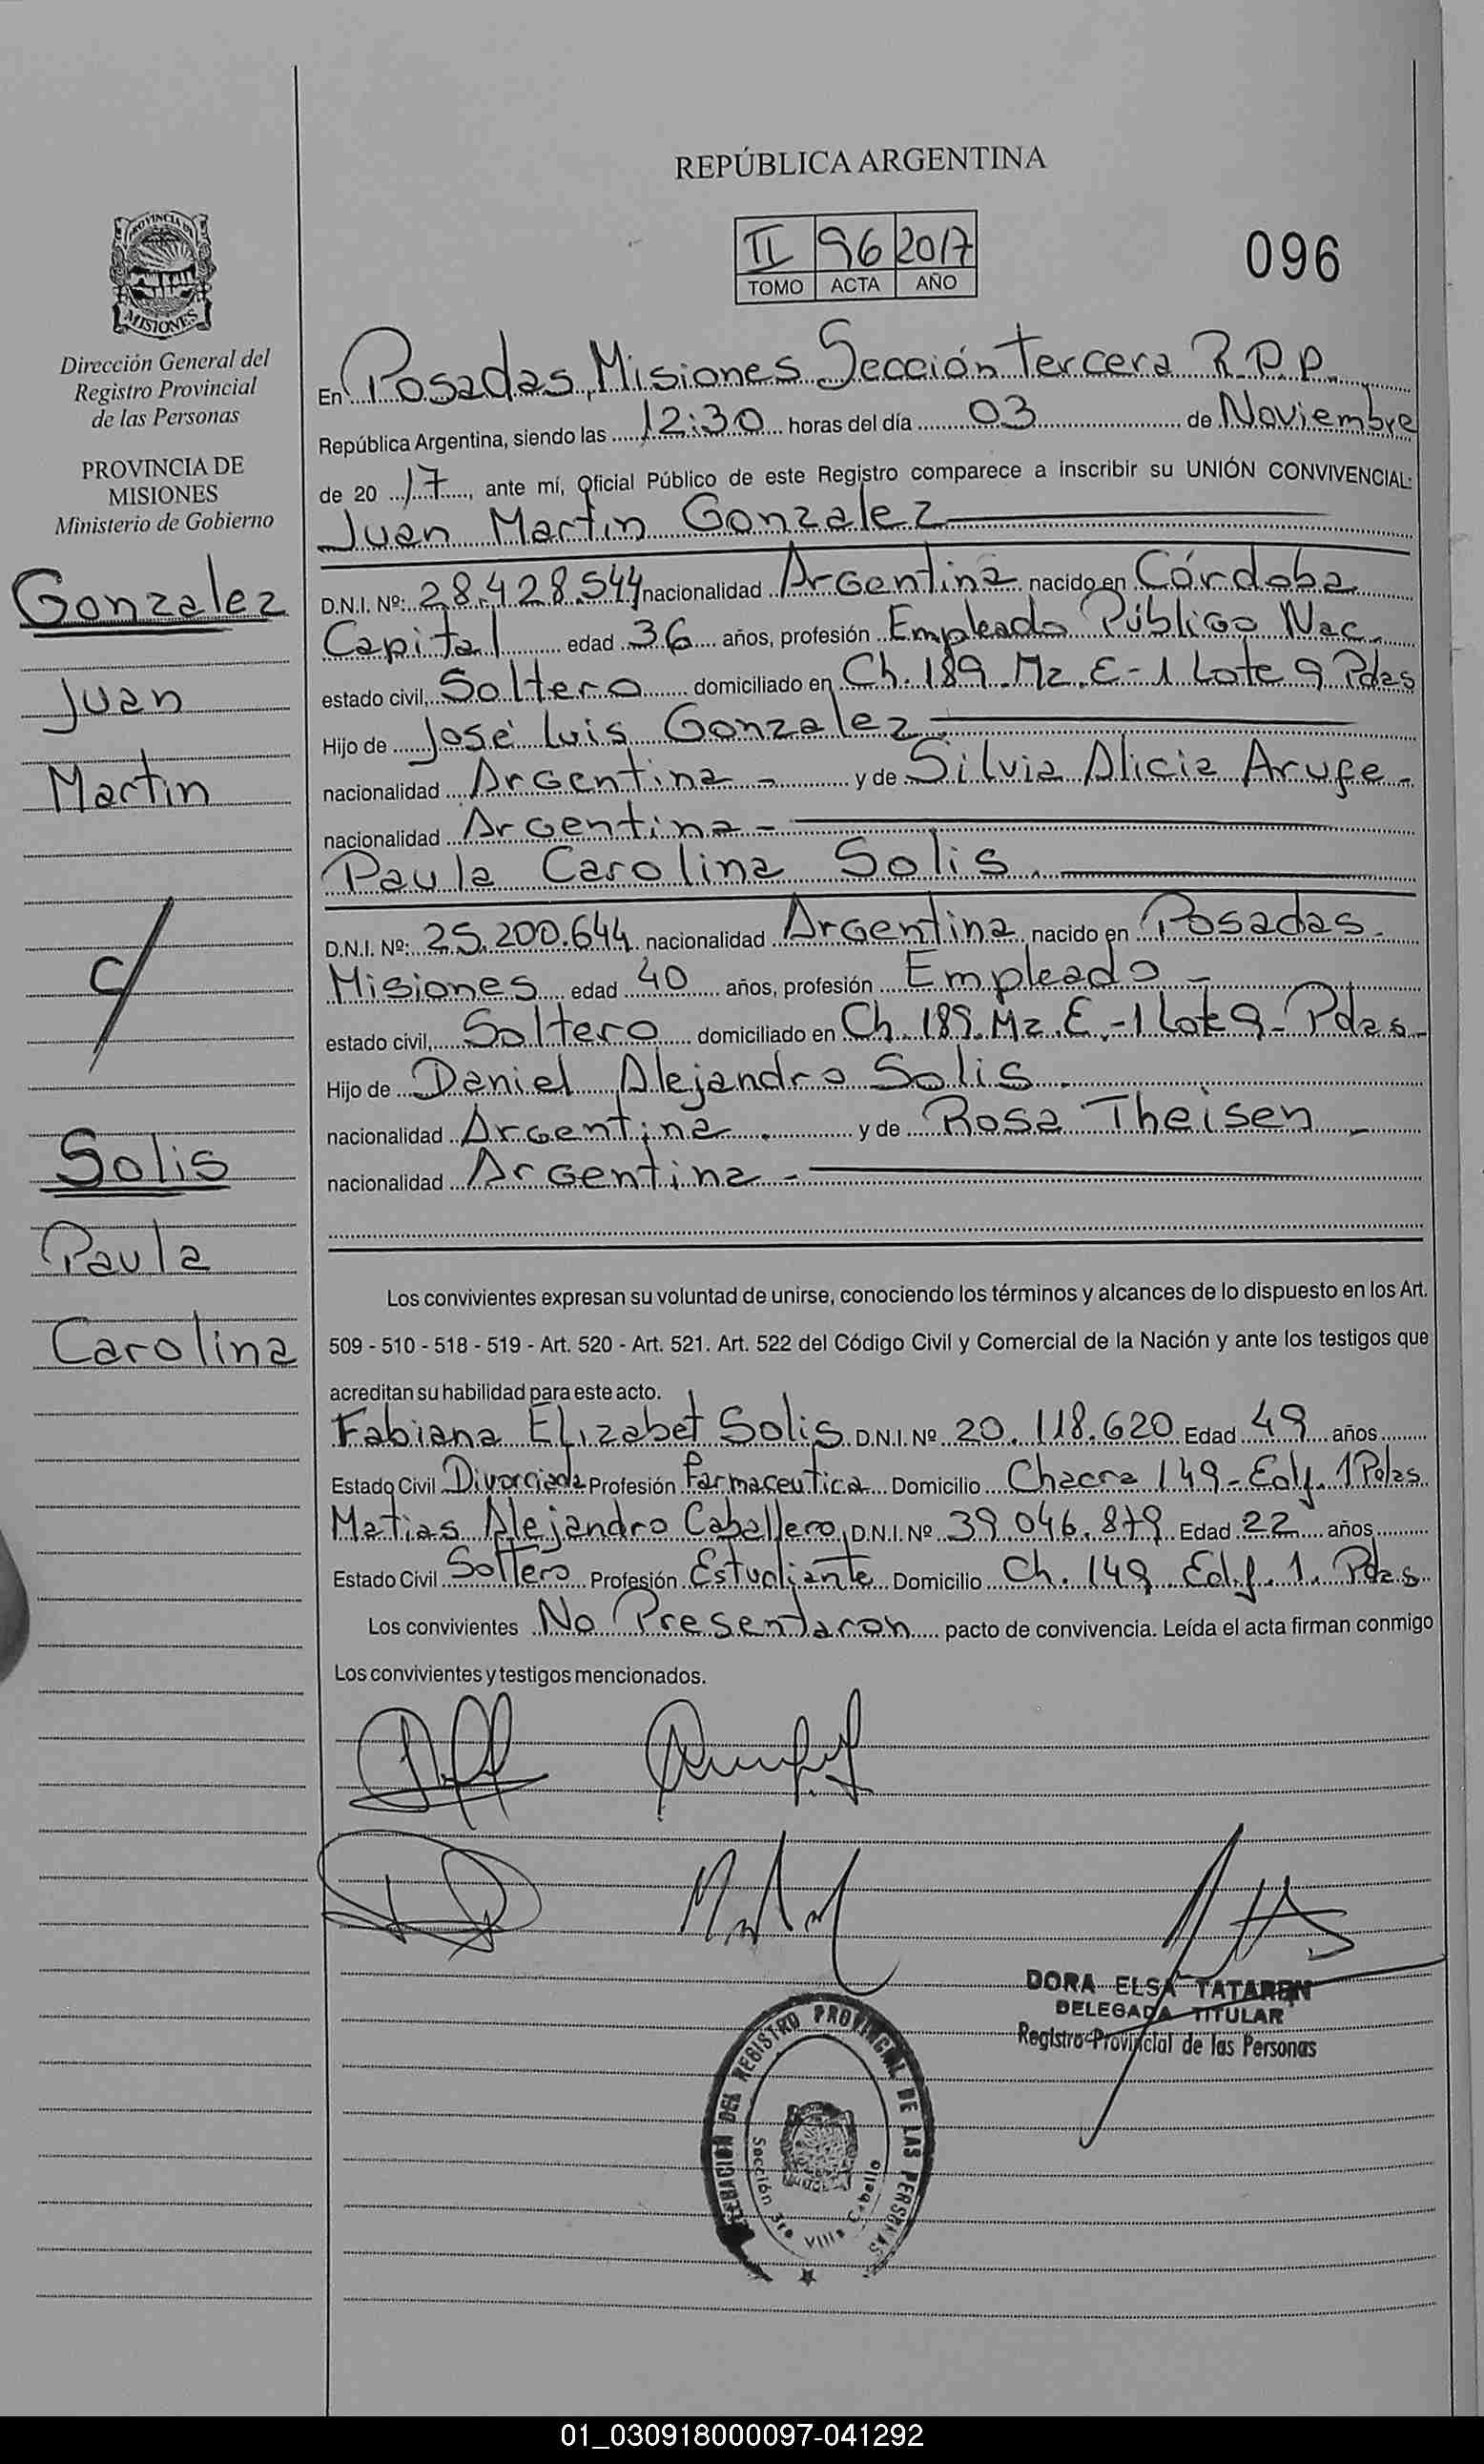 REPÚBLICA ARGENTINA
II 96 2017
TOMO ACTA AÑO
096
PROVINCIA DE
MISIONES
Dirección General del
Registro Provincial
de las Personas
PROVINCIA DE
MISIONES
Ministerio de Gobierno
Gonzalez
Juan
Martin
c/
Solis
Paula
Carolina
En Posadas, Misiones Sección Tercera R.P.P.
República Argentina, siendo las 12:30 horas del día 03 de Noviembre
de 20 17, ante mí, Oficial Público de este Registro comparece a inscribir su UNIÓN CONVIVENCIAL:
Juan Martin Gonzalez
D.N.I. Nº: 28.428.544 nacionalidad Argentina nacido en Córdoba
Capital edad 36 años, profesión Empleado Público Nac.
estado civil, Soltero domiciliado en Ch. 189 Mz. E-1 Lote 9 Pdas
Hijo de José Luis Gonzalez
nacionalidad Argentina - y de Silvia Alicia Arufe -
nacionalidad Argentina -
Paula Carolina Solis.
D.N.I. Nº: 25.200.644 nacionalidad Argentina nacido en Posadas -
Misiones edad 40 años, profesión Empleado -
estado civil, Soltero domiciliado en Ch. 189. Mz. E.-1 Lote 9 - Pdas -
Hijo de Daniel Alejandro Solis.
nacionalidad Argentina. y de Rosa Theisen -
nacionalidad Argentina -
Los convivientes expresan su voluntad de unirse, conociendo los términos y alcances de lo dispuesto en los Art.
509 - 510 - 518 - 519 - Art. 520 - Art. 521. Art. 522 del Código Civil y Comercial de la Nación y ante los testigos que
acreditan su habilidad para este acto.
Fabiana Elizabet Solis D.N.I. Nº 20.118.620 Edad 49 años
Estado Civil Divorciada Profesión Farmaceutica Domicilio Chacra 149 - Edf. 1 Pdas.
Matias Alejandro Caballero D.N.I. Nº 39.046.879 Edad 22 años
Estado Civil Soltero Profesión Estudiante Domicilio Ch. 149 Edf. 1. Pdas.
Los convivientes No Presentaron pacto de convivencia. Leída el acta firman conmigo
Los convivientes y testigos mencionados.
DORA ELSA TATAREN
DELEGADA TITULAR
Registro Provincial de las Personas
DEL REGISTRO PROVINCIAL DE LAS PERSONAS
Sección 3ra Villa Cabello
01_030918000097-041292